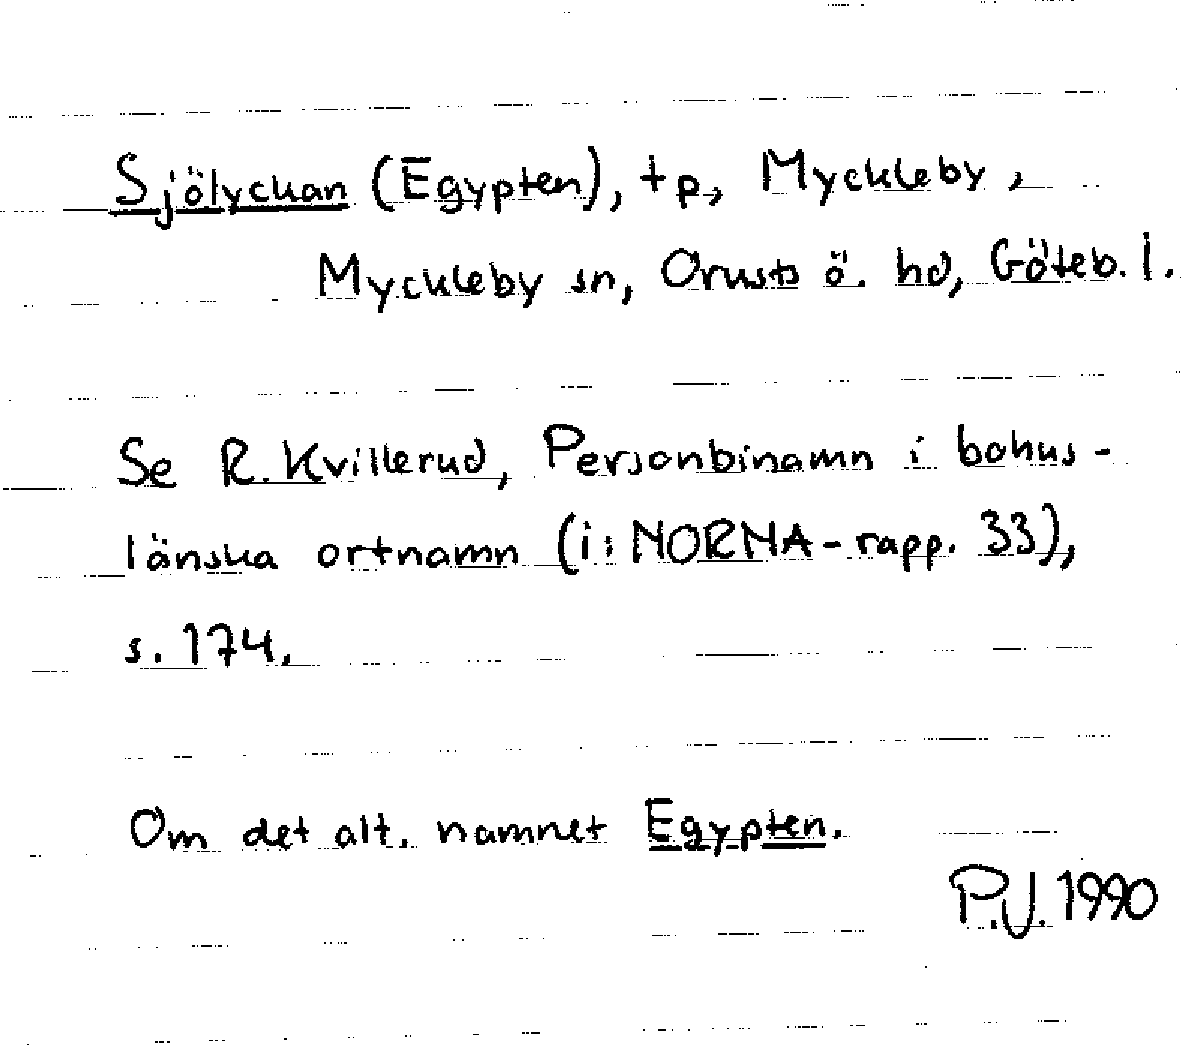 Sjölyckan (Egypten), tp, Myckleby,
Myckleby sn, Orusts ö. hd, Göteb. l.
Se R. Kvillerud, Personbinamn i bohus-
länska ortnamn (i: NORNA-rapp. 33),
s. 174.
Om det alt. namnet Egypten.
P.J. 1990